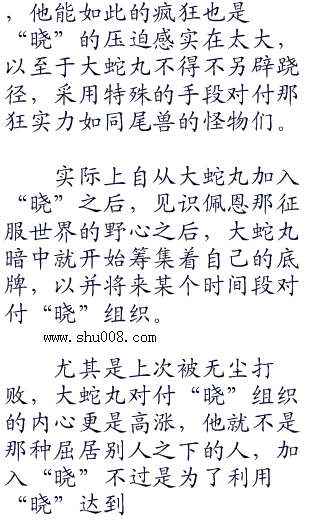 ，他能如此的疯狂也是
“晓”的压迫感实在太大，
以至于大蛇丸不得不另辟蹊
径，采用特殊的手段对付那
狂实力如同尾兽的怪物们。
实际上自从大蛇丸加入
“晓”之后，见识佩恩那征
服世界的野心之后，大蛇丸
暗中就开始筹集着自己的底
牌，以并将来某个时间段对
付“晓”组织。
www.shu008.com
尤其是上次被无尘打
败，大蛇丸对付“晓”组织
的内心更是高涨，他就不是
那种屈居别人之下的人，加
入“晓”不过是为了利用
“晓”达到